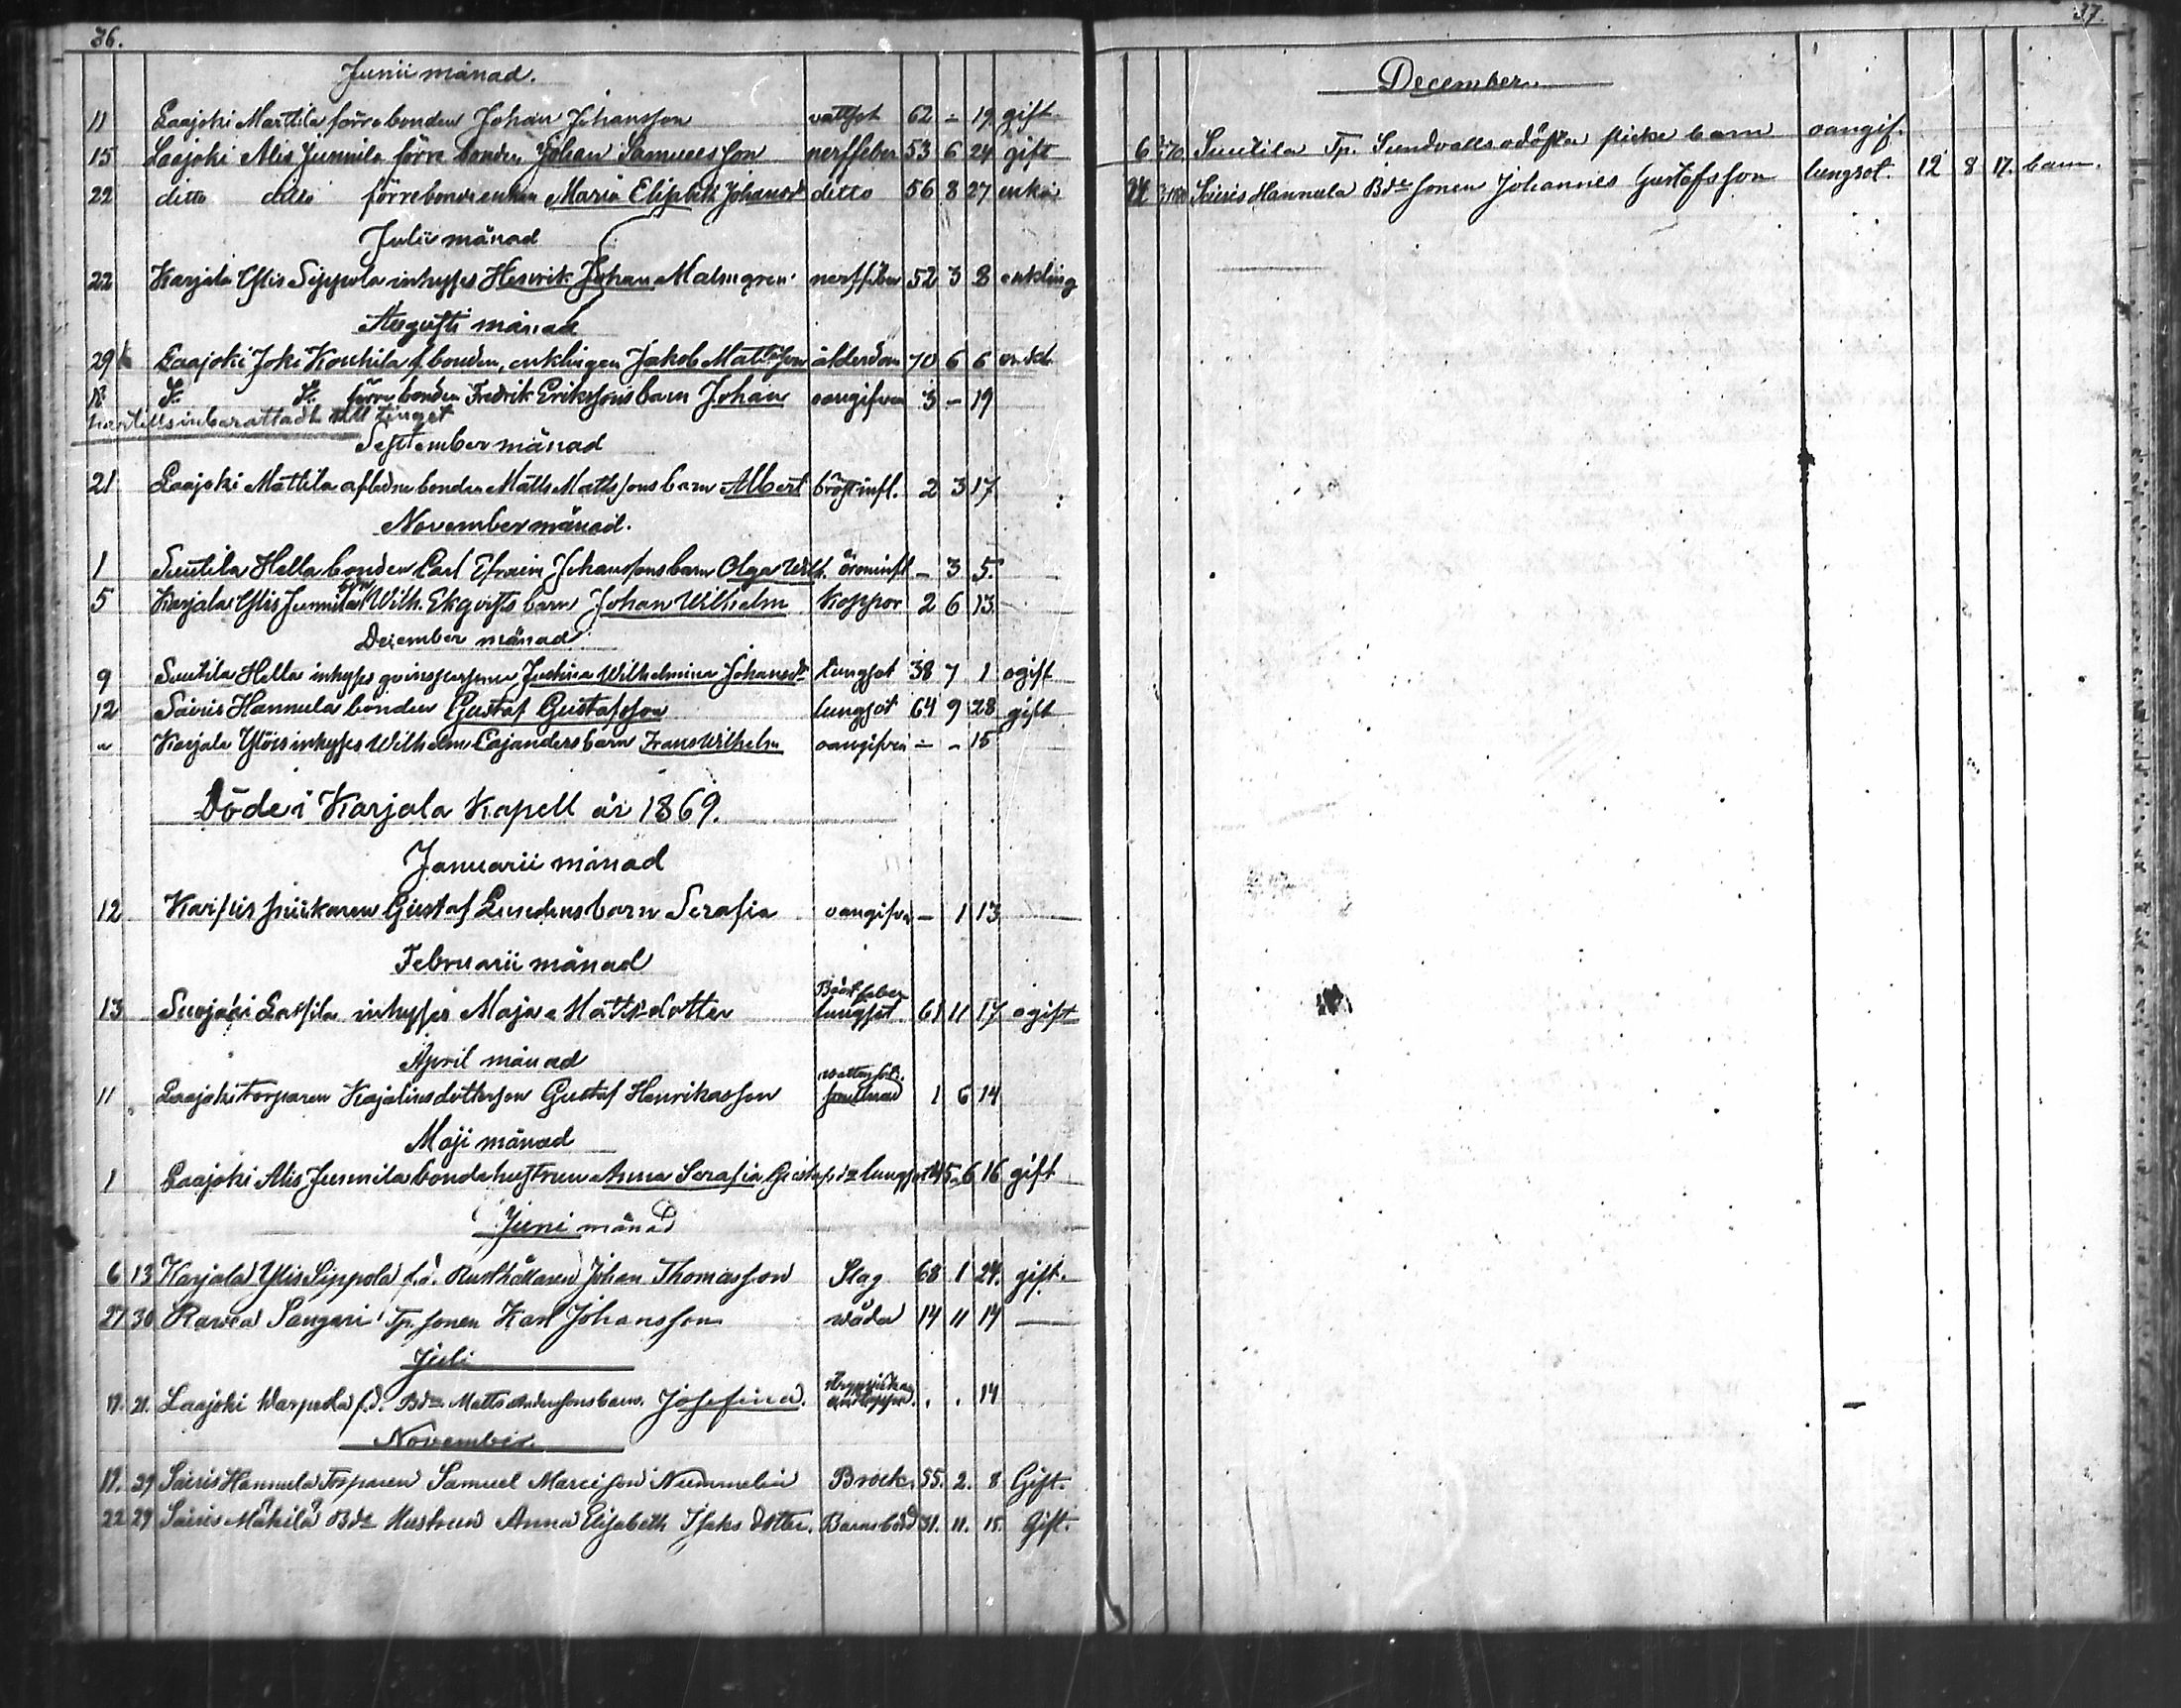 36.
Junii månad.
11 Laajoki Marttila förre bonden Johan Johansson vattsot 62 - 19 gift
15 Laajoki Alis Junnila förre bonden Johan Samuelsson nerffeber 53 6 24 gift
22 ditto ditto förre bondeenkan Maria Elisabeth Johansdr ditto 56 8 27 enka
Julii månad
22 Karjala Ylis Sippola inhyses Henrik Johan Malmgren nerffeber 52 3 8 enkling
Augusti månad
29 Laajoki Joki Kouhila f. bonden, enklingen Jakob Mattsson ålderdom 70 6 6 enkl.
18 Dº Dº förre bonden Fredrik Erikssons barn Johan oangifven 3 - 19
till tinget
September månad
21 Laajoki Mattila aflidne bonden Matts Mattssons barn Albert bröstinfl. 2 3 17
November månad.
1 Suutila Hella bonden Carl Efraim Johanssons barn Olga Wilh. öroninfl - 3 5.
5 Karjala Ylis Junnila Wilh. Ekqvists barn Johan Wilhelm Koppor 2 6 13
December månad
9 Suutila Hella inhyses qvinspersonen Justina Wilhelmina Johansdr lungsot 38 7 1 ogift
12 Säiris Hannula bonden Gustaf Gustafsson lungsot 64 9 28 gift
" Karjala Ylöis inhyses Wilhelm Cajanders barn Frans Wilhelm oangifven - - 15
Döde i Karjala Kapell år 1869.
Januarii månad
12 Gustaf Lundens barn Serafia oangifven - 1 13
Februarii månad
13 Suojoki Lassila inhyses Maja Mattsdotter Bröstfeber lungsot 61 11 17 ogift
April månad
11 Laajoki torparen Kajalins dotterson Gustaf Henriksson 1 6 14
Maji månad
1 Laajoki Alis Junnila bondehustrun Anna Serafia Gustafsdr lungsot 45 6 16 gift
Juni månad
6 13 Karjala Ylis Sippola f.d. Rusthållaren Johan Thomasson Slag 68 1 24. gift.
27 30 Karvea Sangari Tp. sonen Karl Johansson wåda 14 11 14 —
Juli
17. 21. Laajoki Warpula f.d. Bdn Matts Anderssons barn Josefina. . . 14
November
17. 29 Säiris Hannula Torparen Samuel Marcisson Nummelin Bråck. 55. 2. 8 Gift.
22 29 Säiris Mäkilä Bde Hustrun Anna Elisabeth Isaks dotter. Barnsbörd 31. 11. 15. Gift.
37.
December.
6 Suutila Tp. Sundvalls odöpta flicke barn oangif.
24 Säiris Hannula Bde sonen Johannes Gustafsson lungsot. 12 8 17. barn.